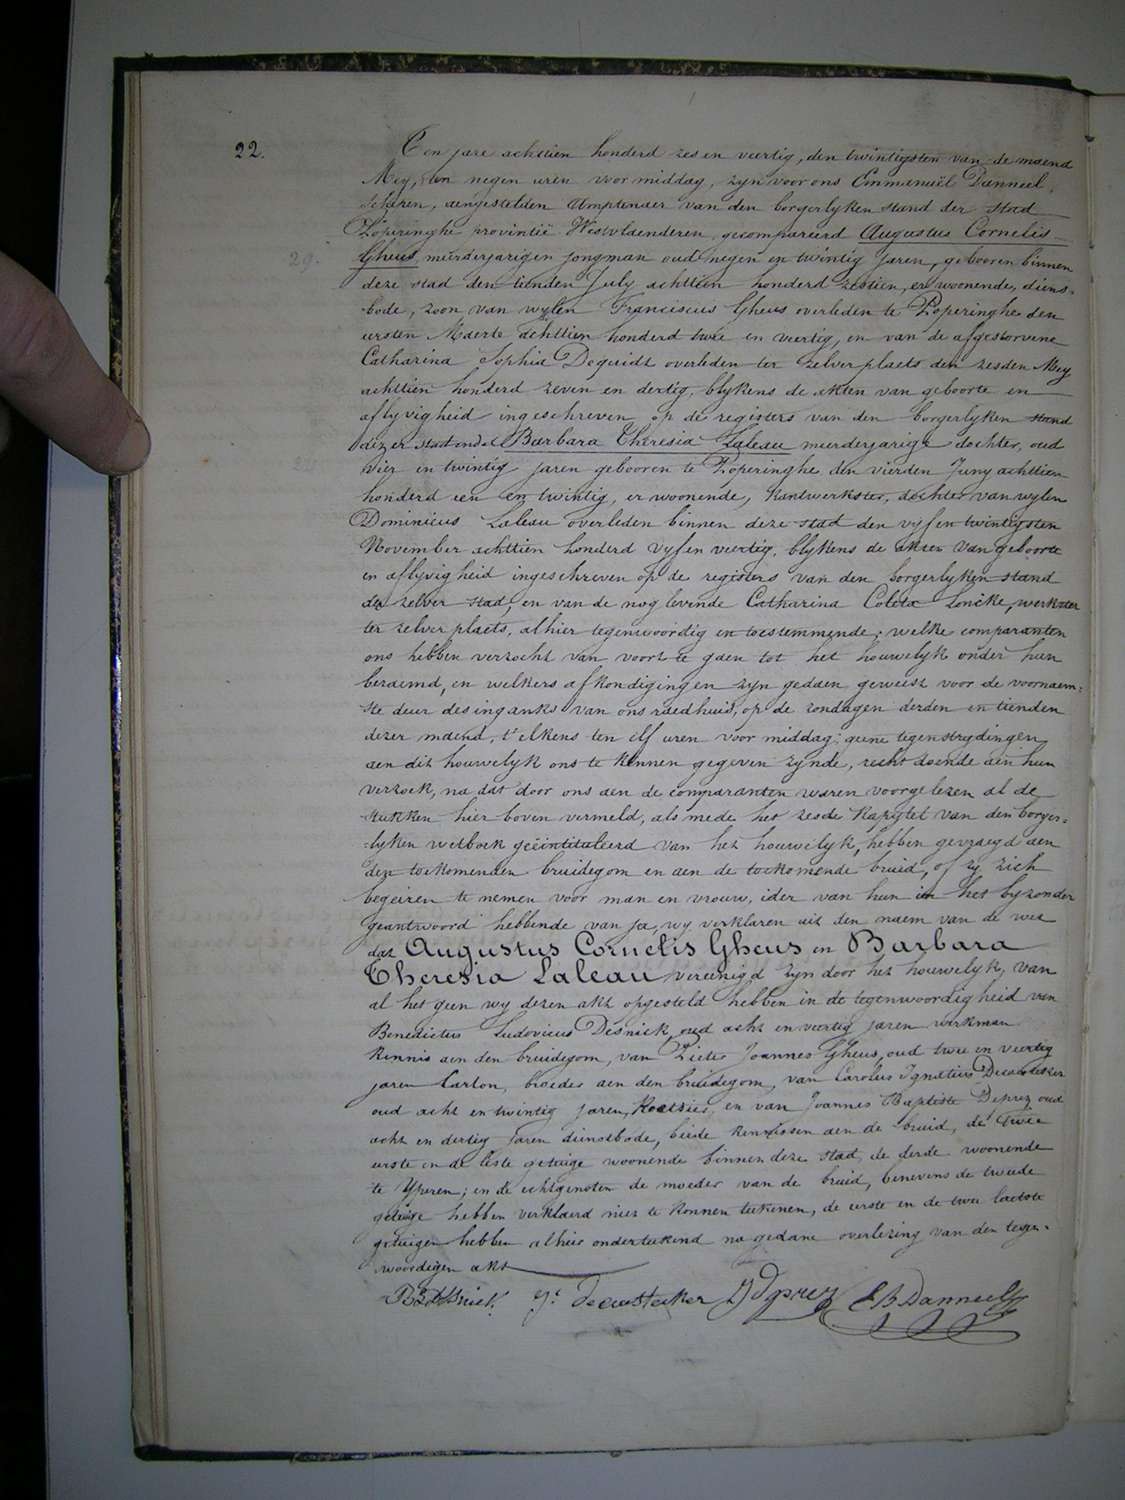 22.
Ten jare achttien honderd zes en veertig, den twintigsten van de maend
Mey, ten negen uren voor middag, zyn voor ons Emmanuël Danneel,
schepen, aengestelden Amptenaer van den borgerlyken stand der stad
Poperinghe provintië Westvlaenderen, gecompareerd Augustus Cornelis
Gheus, meerderjarigen jongman oud negen en twintig jaren, gebooren binnen
deze stad den tienden July achttien honderd zestien, er woonende, diens-
bode, zoon van wylen Franciscus Gheus overleden te Poperinghe den
eersten Maerte achttien honderd twee en veertig, en van de afgestorvene
Catharina Sophia Deguidt overleden ter zelver plaets den zesden Mey
achttien honderd zeven en dertig, blykens de akten van geboorte en
aflyvigheid ingeschreven op de registers van den borgerlyken stand
dezer stad en de Barbara Theresia Laleau meerderjarige dochter, oud
vier en twintig jaren gebooren te Poperinghe, den vierden Juny achttien
honderd een en twintig, er woonende, kantwerkster, dochter van wylen
Dominicus Laleau overleden binnen deze stad den vyf en twintigsten
November achttien honderd vyf en veertig, blykens de akten van geboorte
en aflyvigheid ingeschreven op de registers van den borgerlyken stand
der zelver stad, en van de nog levende Catharina Coleta Loncke, werkster
ter zelver plaets, alhier tegenwoordig en toestemmende; welke comparanten
ons hebben verzocht van voort te gaen tot het houwelyk onder hun
beraemd, en welkers afkondigingen zyn gedaen geweest voor de voornaem-
ste deur des inganks van ons raedhuis, op de zondagen derden en tienden
dezer maend, t'elkens ten elf uren voor middag; geene tegenstrydingen
aen dit houwelyk ons te kennen gegeven zynde, recht doende aen hun
verzoek, na dat door ons aen de comparanten waren voorgelezen al de
stukken hier boven vermeld, als mede het zesde kapittel van den borger-
lyken wetboek geïntituleerd van het houwelyk, hebben gevraegd aen
den toekomenden bruidegom en aen de toekomende bruid, of zy zich
begeiren te nemen voor man en vrouw, ider van hun in het byzonder
geantwoord hebbende van ja, wy verklaren uit den naem van de wet
dat Augustus Cornelis Gheus en Barbara
Theresia Laleau vereenigd zyn door het houwelyk; van
al het geen wy dezen akt opgesteld hebben in de tegenwoordigheid van
Benedictus Ludovicus Desniek, oud acht en veertig jaren werkman
kennis aen den bruidegom, van Pieter Joannes Gheus, oud twee en veertig
jaren Carton, broeder aen den bruidegom, van Carolus Ignatius Decuesteker
oud acht en twintig jaren, Koetsier, en van Joannes Baptiste Deprez oud
acht en dertig jaren dienstbode, beide kennissen aen de bruid, de twee
eerste en de leste getuige woonende binnen deze stad, de derde woonende
te Yperen; en de echtgenoten de moeder van de bruid, benevens de tweede
getuige hebben verklaerd niet te konnen teekenen, de eerste en de twee laetste
getuigen hebben alhier onderteekend na gedane overlezing van den tegen-
woordigen akt
Decuesteker JDeprez E B Danneel